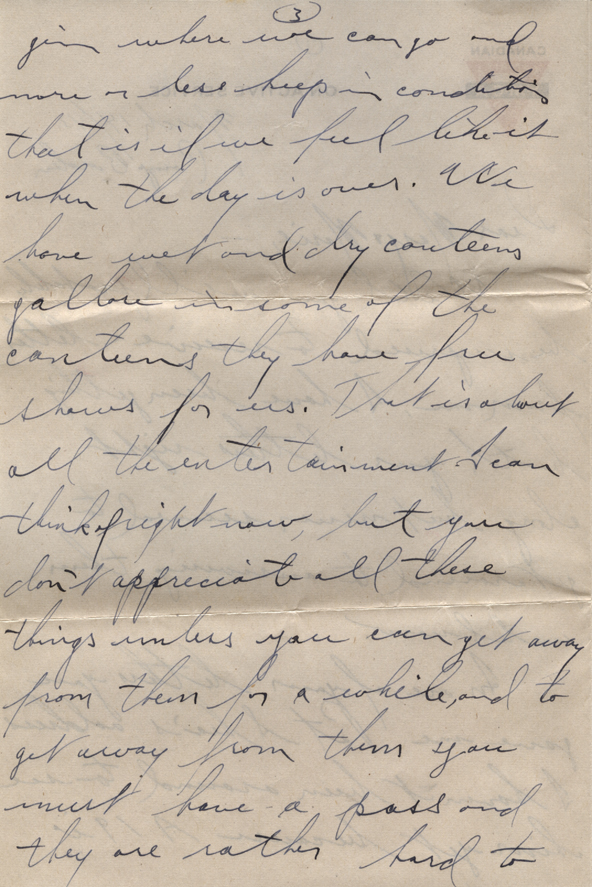 3
gim where we can go and
more or less keep in condition
that is if we feel like it
when the day is over. We
have wet and dry canteens
gallore in some of the
canteens they have free
shows for us. That is about
all the entertainment I can
think of right now, but you
don't appreciate all these
things unless you can get away
from them for a while, and to
get away from them you
must have a pass and
they are rather hard to